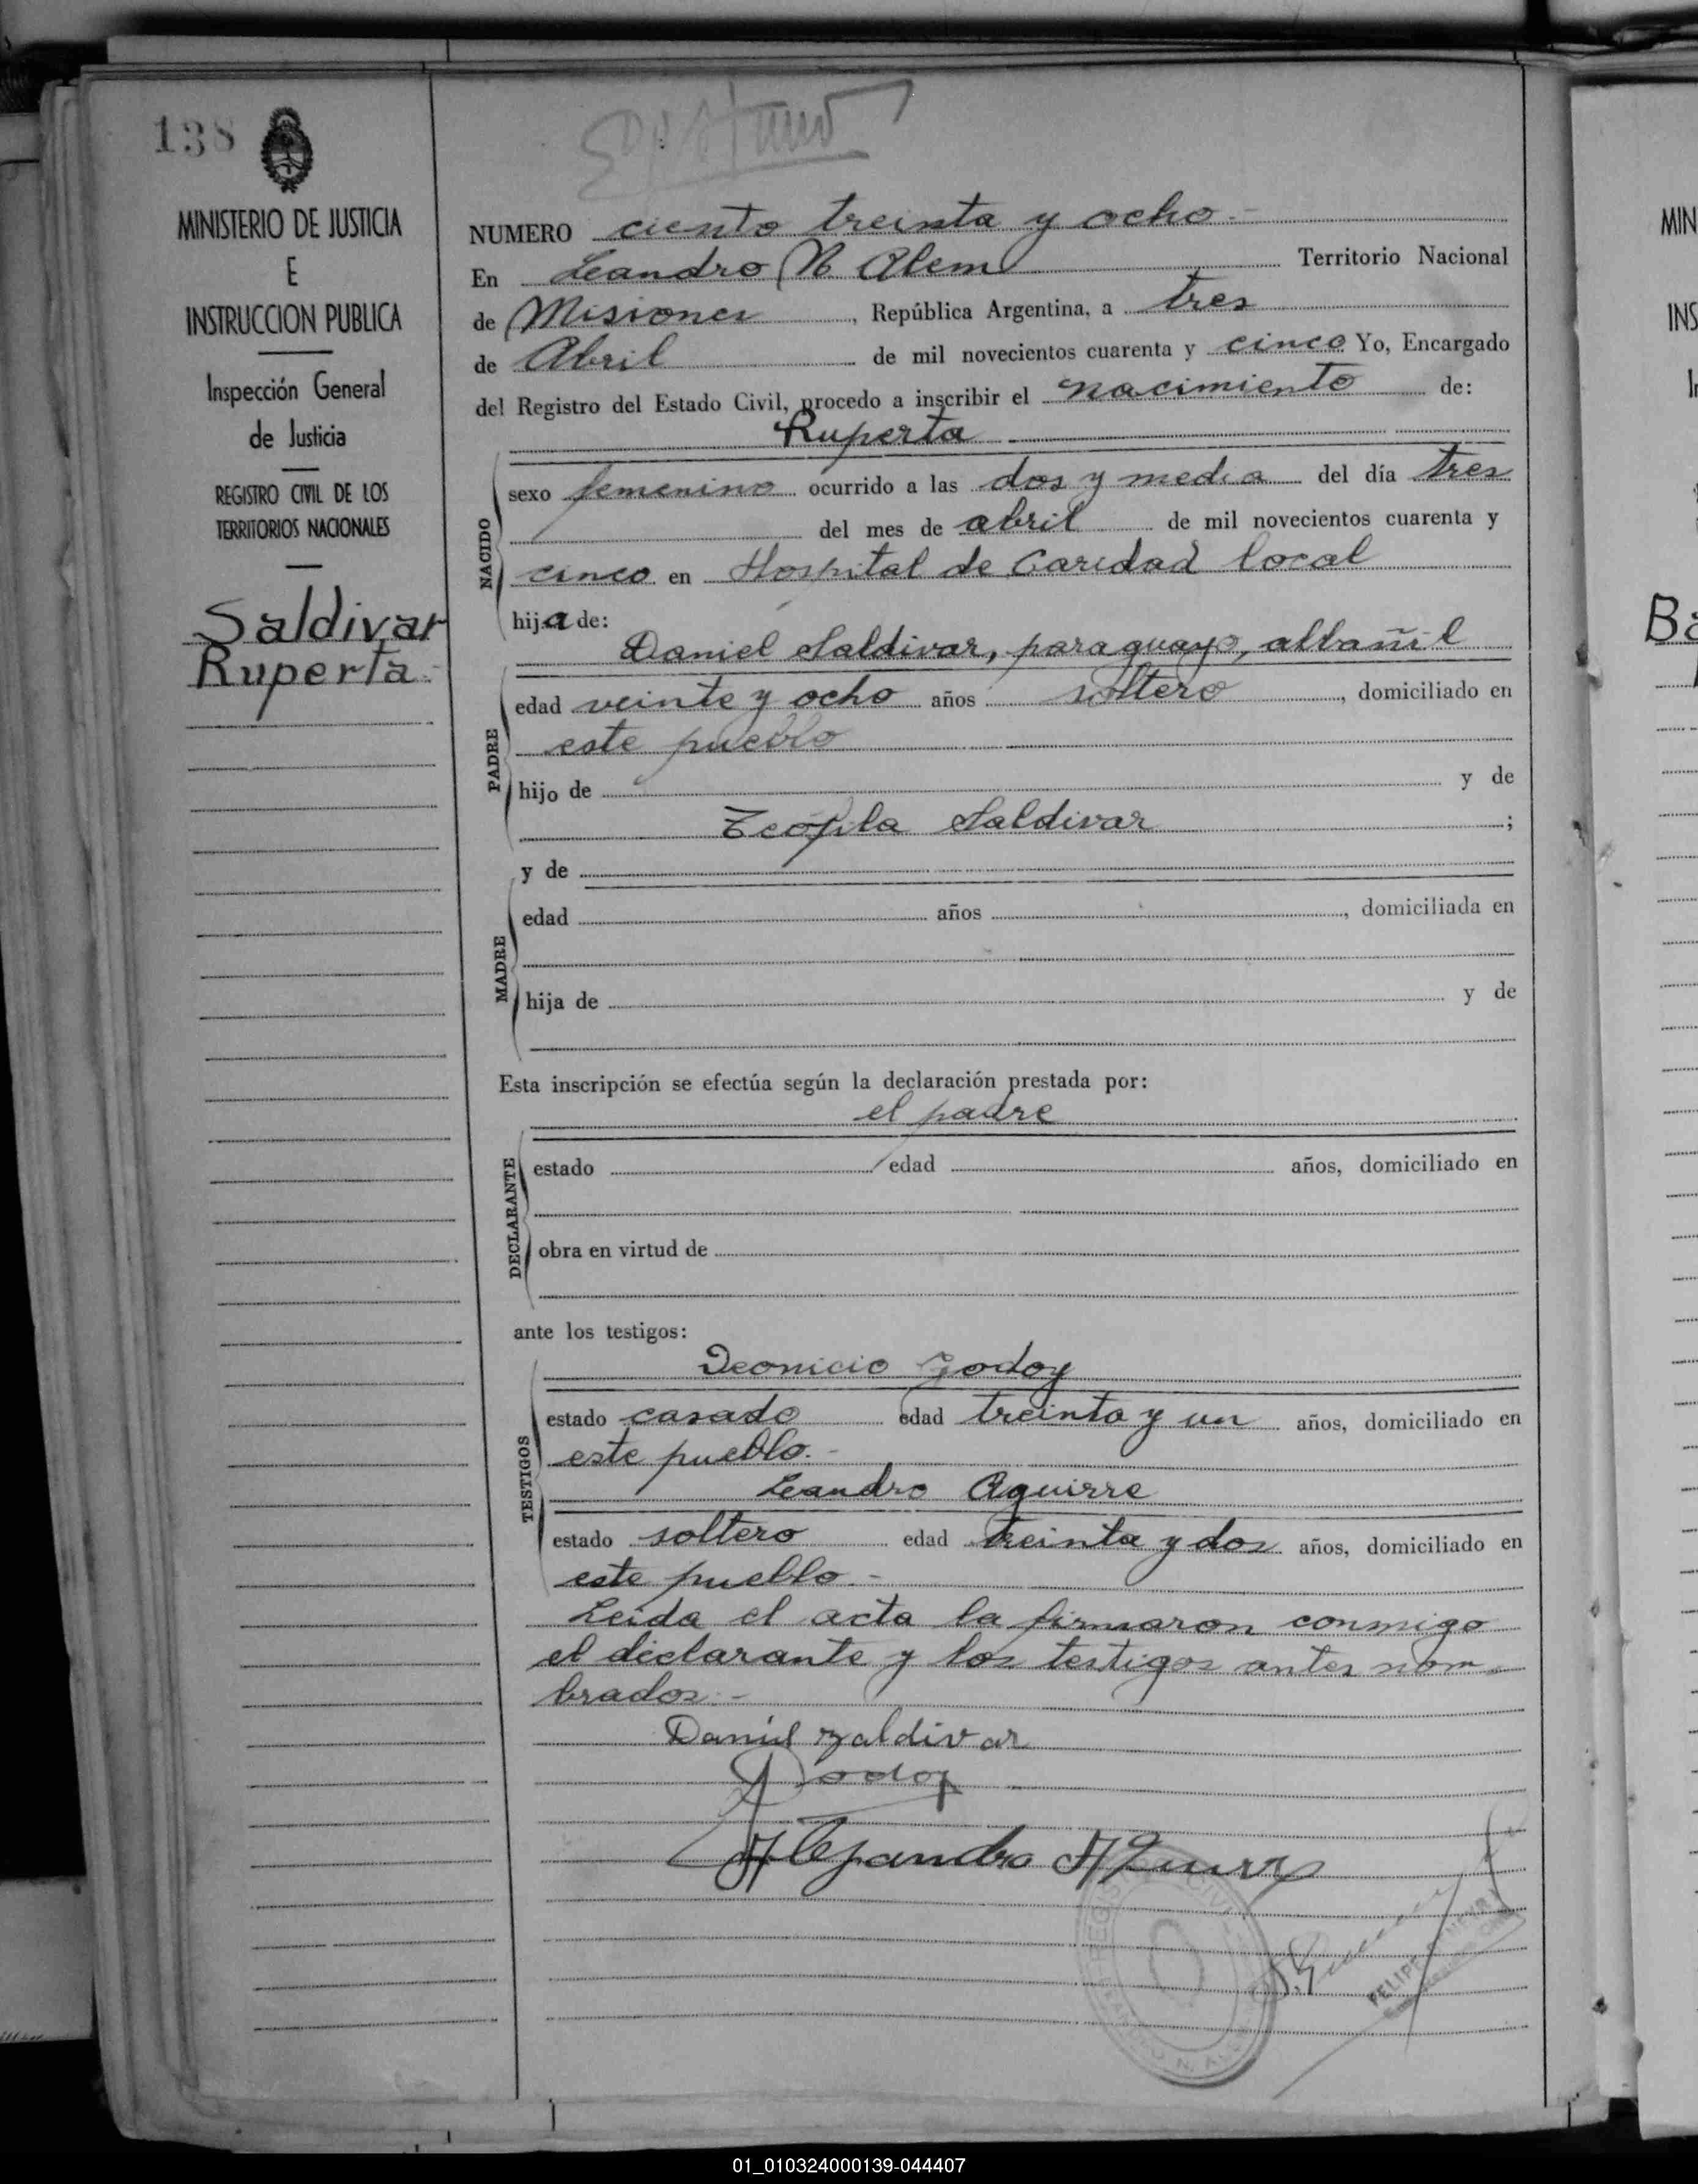 138
MINISTERIO DE JUSTICIA
E
INSTRUCCION PUBLICA
Inspección General
de Justicia
REGISTRO CIVIL DE LOS
TERRITORIOS NACIONALES
Saldivar
Ruperta.
NUMERO ciento treinta y ocho.-
En Leandro N Alem Territorio Nacional
de Misiones, República Argentina, a tres
de Abril de mil novecientos cuarenta y cinco Yo, Encargado
del Registro del Estado Civil, procedo a inscribir el nacimiento de:
Ruperta
NACIDO
sexo femenino ocurrido a las dos y media del día tres
del mes de abril de mil novecientos cuarenta y
cinco en Hospital de Caridad local
hija de:
Daniel Saldivar, paraguayo, albañil
PADRE
edad veinte y ocho años soltero, domiciliado en
este pueblo
hijo de y de
Teófila Saldivar;
y de
MADRE
edad años, domiciliada en
hija de y de
Esta inscripción se efectúa según la declaración prestada por:
el padre
DECLARANTE
estado edad años, domiciliado en
obra en virtud de
ante los testigos:
Deonicio Godoy
TESTIGOS
estado casado edad treinta y un años, domiciliado en
este pueblo.-
Leandro Aguirre
estado soltero edad treinta y dos años, domiciliado en
este pueblo.-
Leida el acta la firmaron conmigo
el declarante y los testigos antes nom-
brados.-
Daniel Zaldivar
D Godoy
Alejandro Aguirre
FELIPE
MIN
INS
Ba
01_010324000139-044407